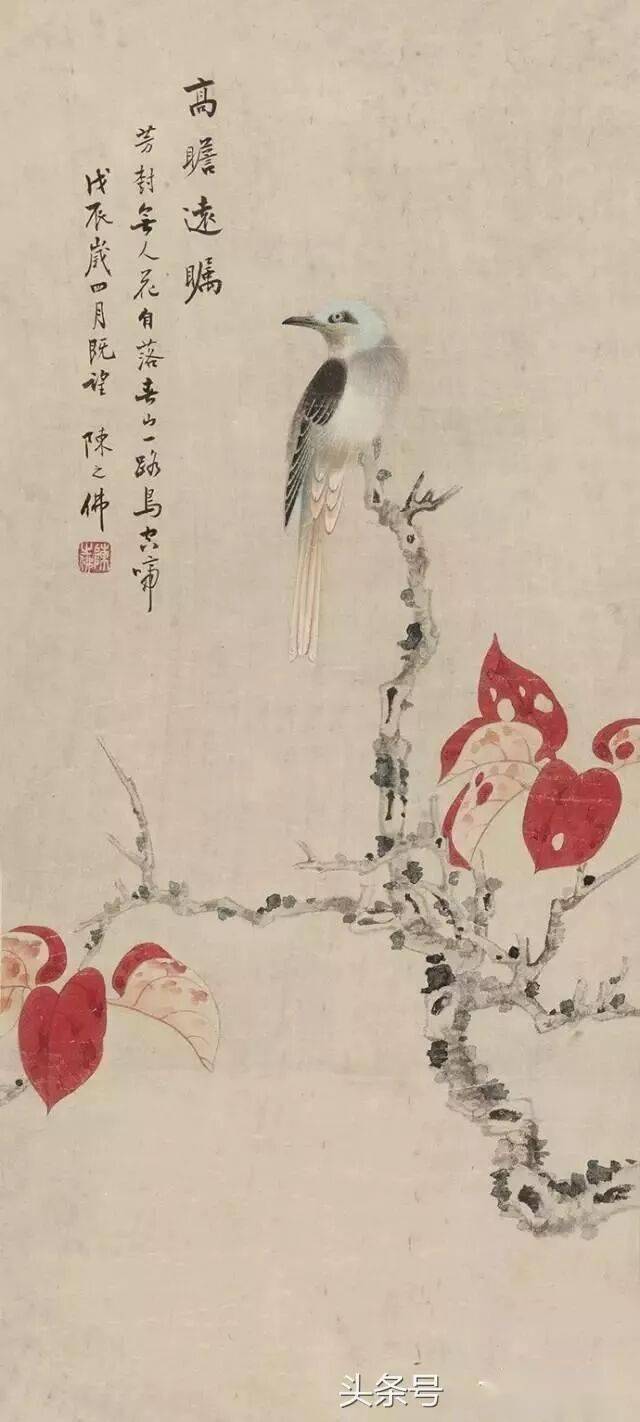 高瞻遠瞩
芳樹無人花自落春山一路鳥空啼
戊辰歲四月既望 陳之佛
陳之佛
头条号